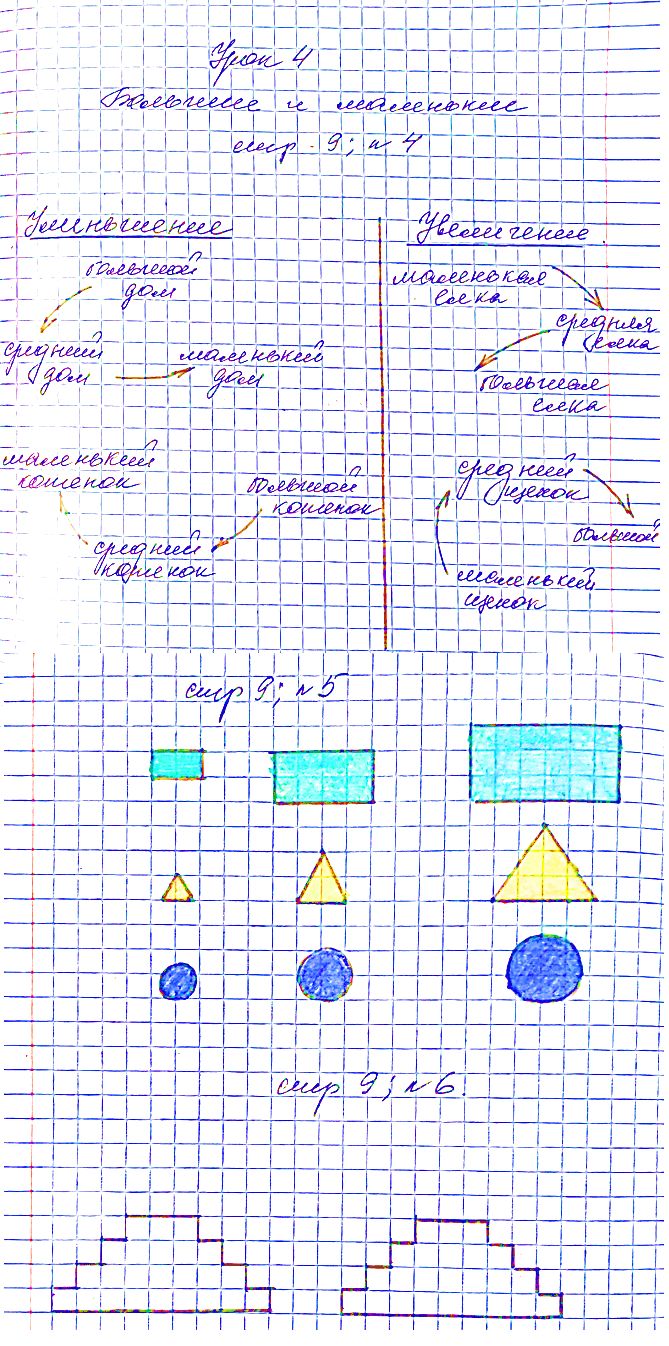 Урок 4
Большие и маленькие
стр. 9; n 4
Уменьшение
большой
дом
средний
дом
маленький
дом
маленький
котенок
большой
котенок
средний
котенок
Увеличение.
маленькая
елка
средняя
елка
большая
елка
средний
щенок
большой
маленький
щенок
стр 9; n 5
стр 9; n 6.